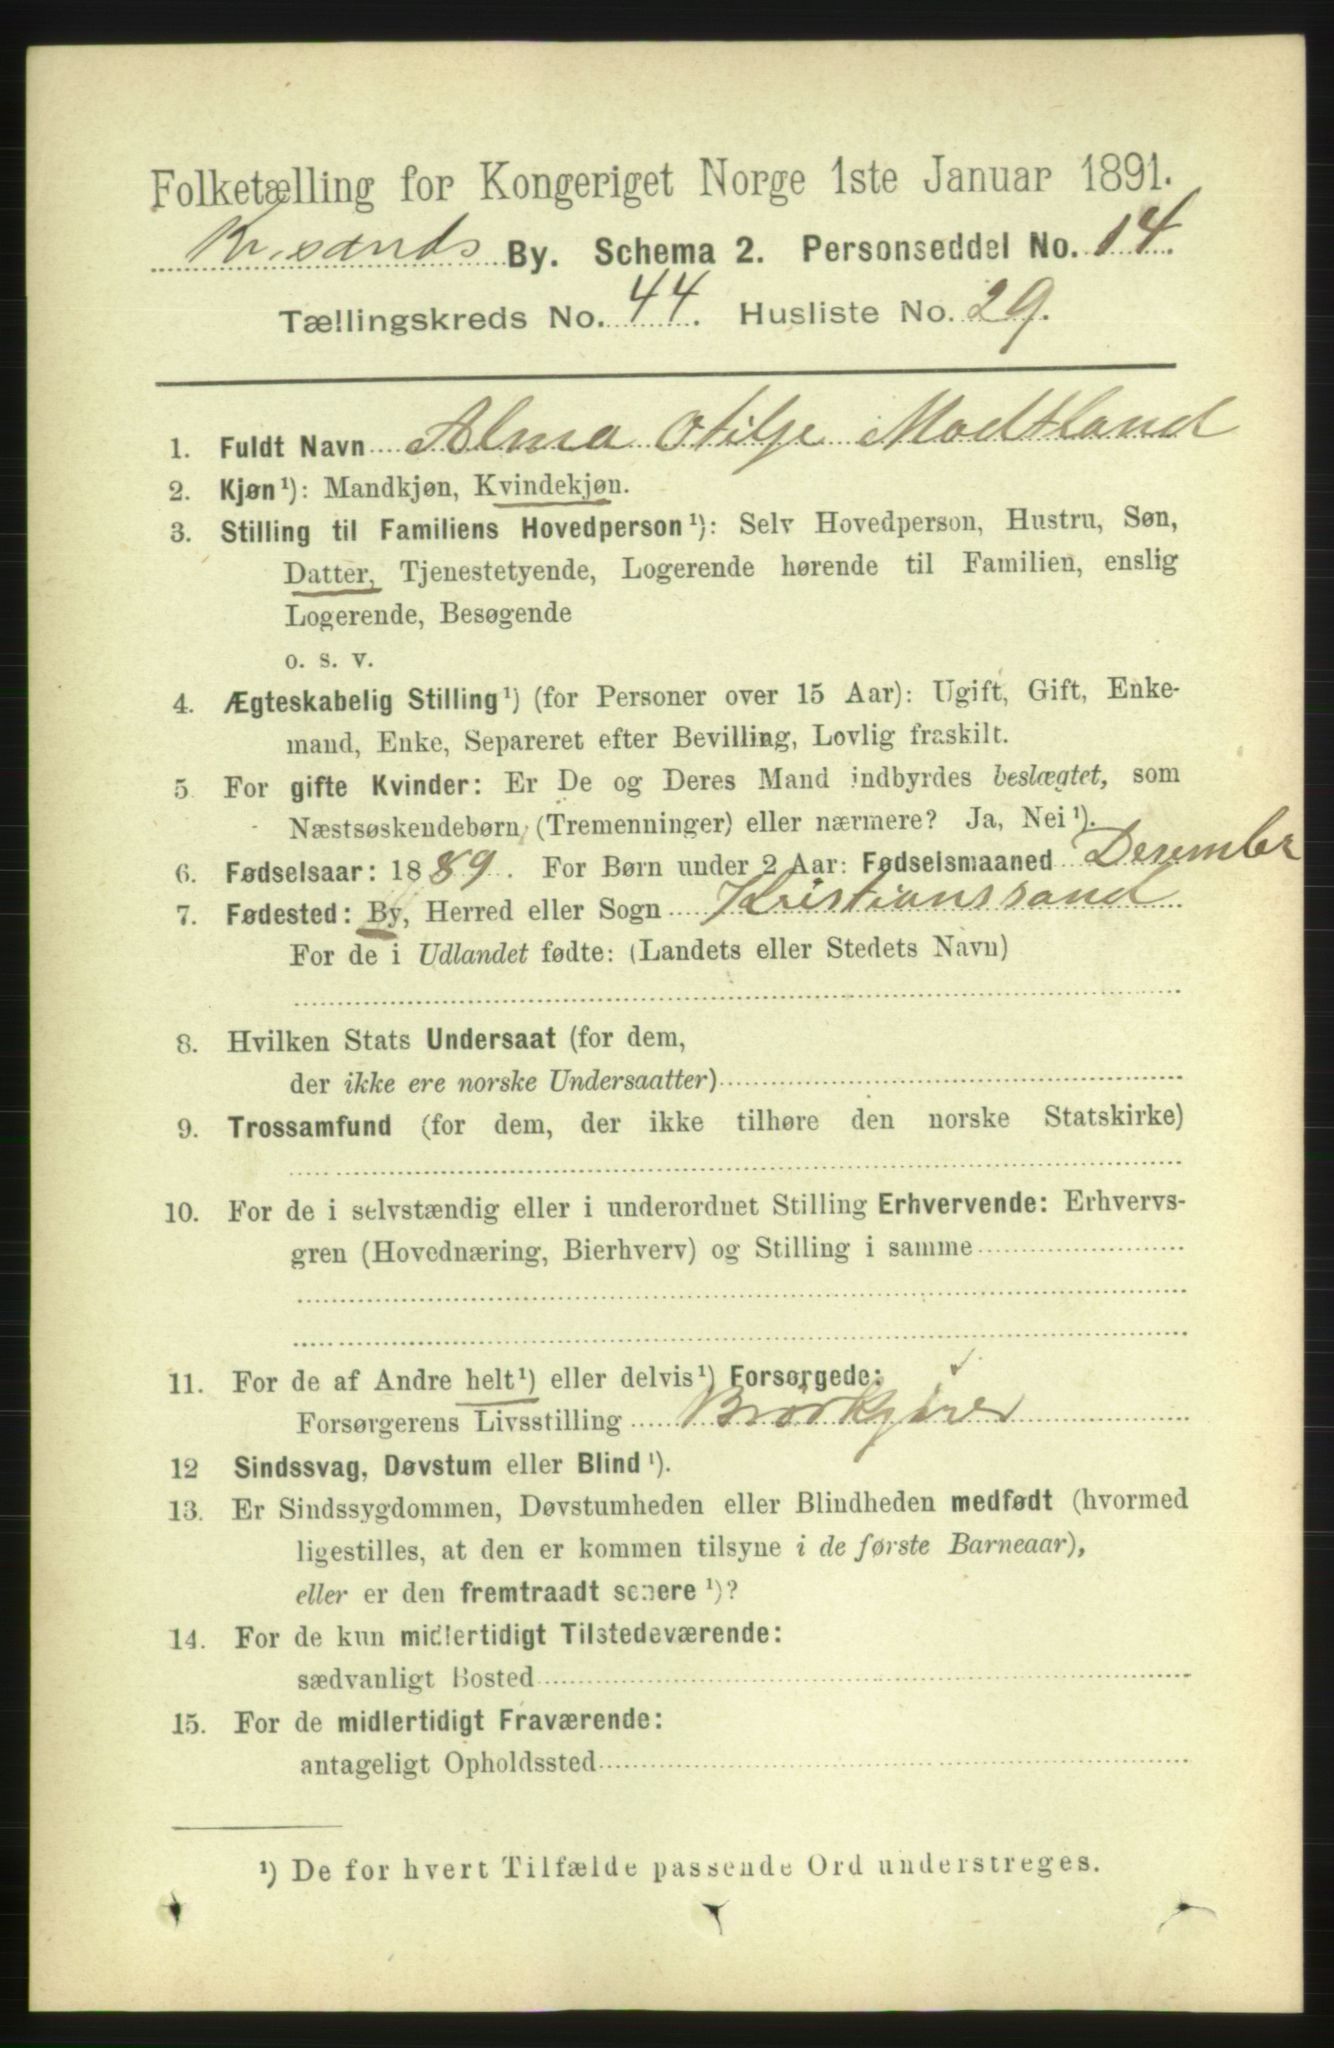 Folketælling for Kongeriget Norge 1ste Januar 1891.
Kr.sands By. Schema 2. Personseddel No. 14.
Tællingskreds No. 44. Husliste No. 29.
1. Fuldt Navn Alma Otilje Modtland
2. Kjøn¹): Mandkjøn, Kvindekjøn.
3. Stilling til Familiens Hovedperson¹): Selv Hovedperson, Hustru, Søn,
Datter, Tjenestetyende, Logerende hørende til Familien, enslig
Logerende, Besøgende
o. s. v.
4. Ægteskabelig Stilling¹) (for Personer over 15 Aar): Ugift, Gift, Enke-
mand, Enke, Separeret efter Bevilling, Lovlig fraskilt.
5. For gifte Kvinder: Er De og Deres Mand indbyrdes beslægtet, som
Næstsøskendebørn (Tremenninger) eller nærmere? Ja, Nei¹).
6. Fødselsaar: 1889. For Børn under 2 Aar: Fødselsmaaned Desember
7. Fødested: By, Herred eller Sogn Kristianssand
For de i Udlandet fødte: (Landets eller Stedets Navn)
8. Hvilken Stats Undersaat (for dem,
der ikke ere norske Undersaatter)
9. Trossamfund (for dem, der ikke tilhøre den norske Statskirke)
10. For de i selvstændig eller i underordnet Stilling Erhvervende: Erhvervs-
gren (Hovednæring, Bierhverv) og Stilling i samme
11. For de af Andre helt¹) eller delvis¹) Forsørgede:
Forsørgerens Livsstilling
12 Sindssvag, Døvstum eller Blind¹).
13. Er Sindssygdommen, Døvstumheden eller Blindheden medfødt (hvormed
ligestilles, at den er kommen tilsyne i de første Barneaar),
eller er den fremtraadt senere¹)?
14. For de kun midlertidigt Tilstedeværende:
sædvanligt Bosted
15. For de midlertidigt Fraværende:
antageligt Opholdssted
¹) De for hvert Tilfælde passende Ord understreges.